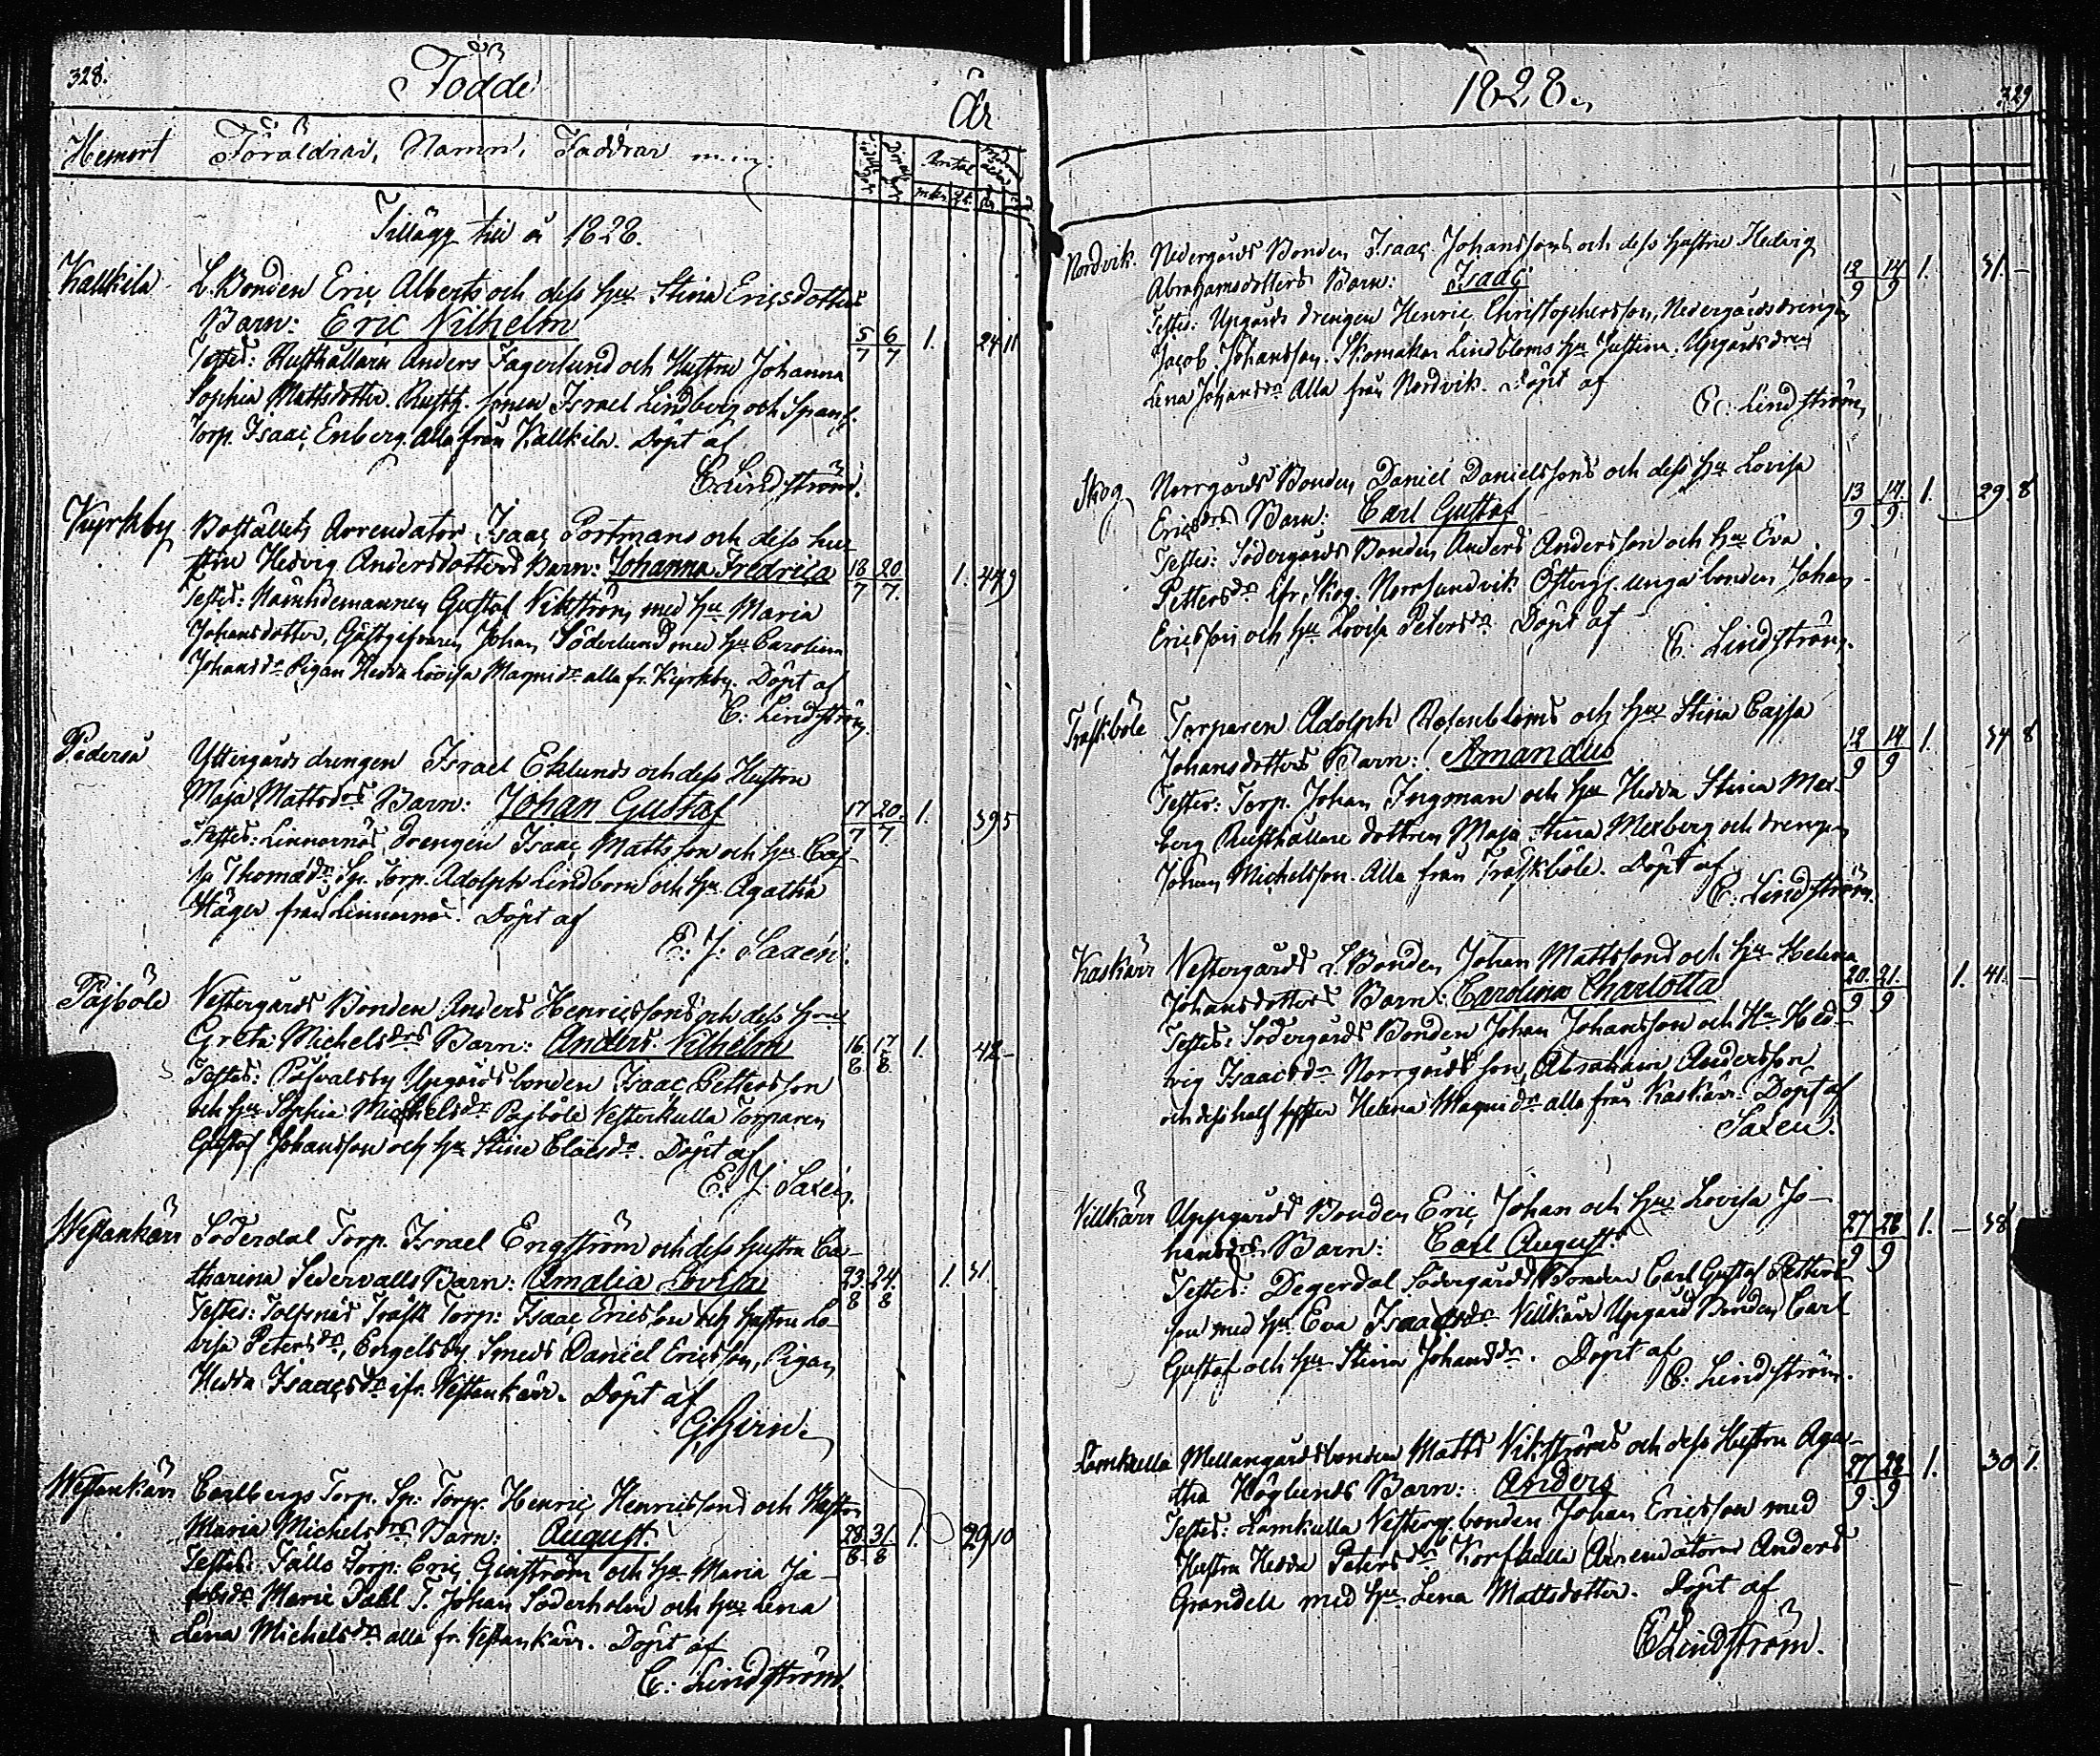 328.
Födde
År
Hemort Föräldrar, Namn, Faddrar m.m.
Antal
mk. qk. år
Tillägg till år 1828.
Kallkila L. Bonden Eric Alberts och dess Hu Stina Ericsdotters
Barn: Eric Vilhelm 5/7 6/7 1. 24 11
Testes: Rusthållarn Anders Fagerlund och Hustru Johanna
Sophia Mattsdotter. Rusth. sonen Israel Lindberg och Spanl.
Torp. Isaac Enberg. Alla från Kallkila. Döpt af
C. Lindström.
Kyrkby Boställets Arrendator Isaac Portmans och dess hu-
stru Hedvig Andersdotters Barn: Johanna Fredrica 18/7 20/7. 1. 44 9
Testes: Nämndemannen Gustaf Vikström med Hu Maria
Johansdotter, Gästgifvaren Johan Söderlund med Hu Carolina
Johansdr Pigan Hedda Lovisa Magnidr alla fr. Kyrkby. Döpt af
C. Lindström.
Pederså Yttergårds drengen Israel Eklunds och dess Hustru
Maja Mattsdrs Barn: Johan Gustaf 17/7 20/7. 1. 39 5
Testes: Linnarnäs Drengen Isaac Mattsson och Hu Caj-
sa Thomædr Sp. Torp. Adolph Lindborn och Hu Agatha
Häger från Linnarnäs. Döpt af
E. J. Saxén.
Pajböle Vestergårds Bonden Anders Henricssons och dess Hus
Greta Michelsdrs Barn: Anders Vilhelm 16/8 17/8 1. 42 -
Testes: Påsvalsby Uppgårds bonden Isaac Pettersson
och Hu Sophia Michelsdr Pajböle Vesterkulla Torparen
Gustaf Johansson och Hu Stina Claesdr. Döpt af
E. J. Saxén.
Westankärr Söderdal Torp. Israel Engström och dess Hustru Ca-
tharina Sedervalls Barn: Amalia Lovisa 23/8 24/8 1. 31.
Testes: Tolfsnäs Träsk Torp: Isaac Ericsson och Hustru Lo-
visa Petersdr, Engelsby Smeds Daniel Ericsson, Pigan
Hedda Isaacsdr ifr. Vestankärr. Döpt af
Westankärr Carlbergs Torp. Sp: Torp. Henric Henricssons och Hustru
Maria Michelsdrs Barn: August. 28/8 31/8 1. 29 10
Testes: Torp. Eric Ginström och Hu Maria Ja-
cobsdr Marie Dahl T. Johan Söderholm och Hus Lena
Lena Michelsdr alla fr. Vestankärr. Döpt af
C. Lindström.
1828.
329
Nordvik. Nedergårds Bonden Isaac Johanssons och dess Hustru Hedvig
Abrahamsdotters Barn: Isaac 12/9 14/9 1. 31. -
Testes: Upgårds drengen Henric Christophersson, Nedergårds drengen
Jacob Johansson. Skomakar Lindbloms Hu Justina. Upgårds
Lena Johansdr Alla från Nordvik. Döpt af
C. Lindström
Skog Norrgårds Bonden Daniel Danielssons och dess Hu Lovisa
Ericsdrs Barn: Carl Gustaf 13/9 14/9. 1. 29. 8
Testes: Södergårds Bonden Anders Andersson och Hu Eva
Pettersdr ifr. Skog. Norrsundvik Österg. unga bonden Johan
Ericsson och Hu Lovisa Petersdr Döpt af
C. Lindström.
Träskböle Torparen Adolph Rosenbloms och Hu Stina Cajsa
Johansdotters Barn: Amandus 12/9 14/9 1. 34 8
Testes: Torp. Johan Ingman och Hu Hedda Stina Mex-
berg Rusthållare dottren Maja Stina Mexberg och drengen
Johan Michelsson. Alla från Träskböle. Döpt af
C. Lindström.
Kaskärr Vestergårds L. Bonden Johan Mattssons och Hu Helena
Johansdotters Barn: Carolina Charlotta 20/9 21/9 1. 41. -
Testes: Södergårds Bonden Johan Johansson och Hu Hed-
vig Isaacsdr Norrgårds son, Abraham Andersson
och dess half syster Helena Magnidr alla från Kaskärr. Döpt af
Saxén.
Villkärr Uppgårds Bonden Eric Johan och Hus Lovisa Jo-
hansdrs Barn: Carl August. 27/9 28/9 1. - 38
Testes: Degerdal Södergårds Bonden Carl Gustaf Petters-
son med Hu Eva Isaacsdr Villkärr Upgård Bonden Carl
Gustaf och Hu Stina Johansdr. Döpt af
C. Lindström.
Lamkulla Mellangårds bonden Matts Vikströms och dess Hustru Aga-
tha Höglunds Barn: Anders 27/9 28/9 1. 30 7.
Testes: Lamkulla Vesterg. bonden Johan Ericsson med
Hustru Hedda Petersdr Korskulla Arrendatorn Anders
Grandell med Hu Lena Mattsdotter. Döpt af
C Lindström.